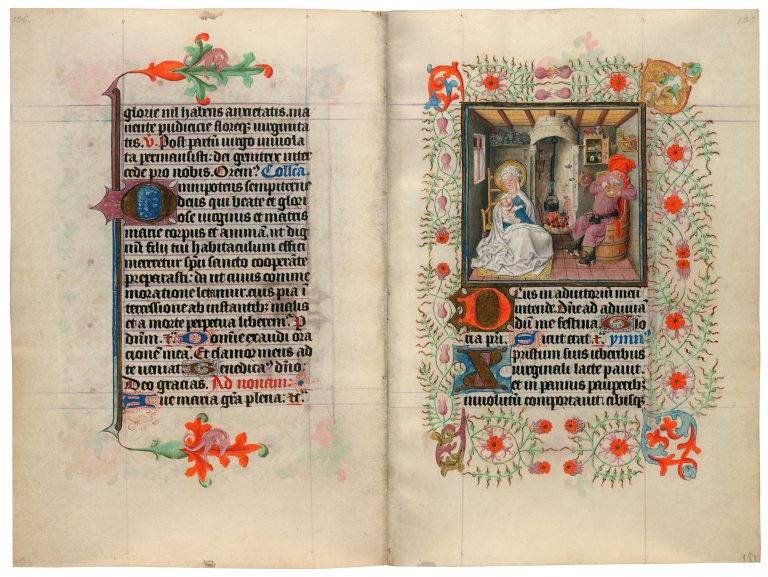 glorie nil habens anxietatis. ma
nente pudicicie floreque virginita
tis. V. Post partum virgo inviola
ta permansisti: dei genitrix inter
cede pro nobis. Orem9 Collecta
Omnipotens sempiterne
deus qui beate et glori
ose virginis et matris
marie corpus et animam. ut dig
num filij tui habitaculum effici
mereretur spiritu sancto cooperante
preparasti: da ut cuius comme
moratione letamur. eius pia i
tercessione ab instantibus malis
et a morte perpetua liberemur. P
Domine exaudi ora
cionem mea. Et clamor meus ad
te veniat Benedicam9 dno:
Deo gracias. Ad nonam:
Ave maria gra plena: tc
Deus in adiutorium meu
intende. Dne ad adiuvan
dum me festina. Glo
ria pri. Sicut erat. tc. ymn9
Xpristum suis uberibus
virginali lacte pavit.
et in pannis pauperib9
involutum comportavit. cibisq3